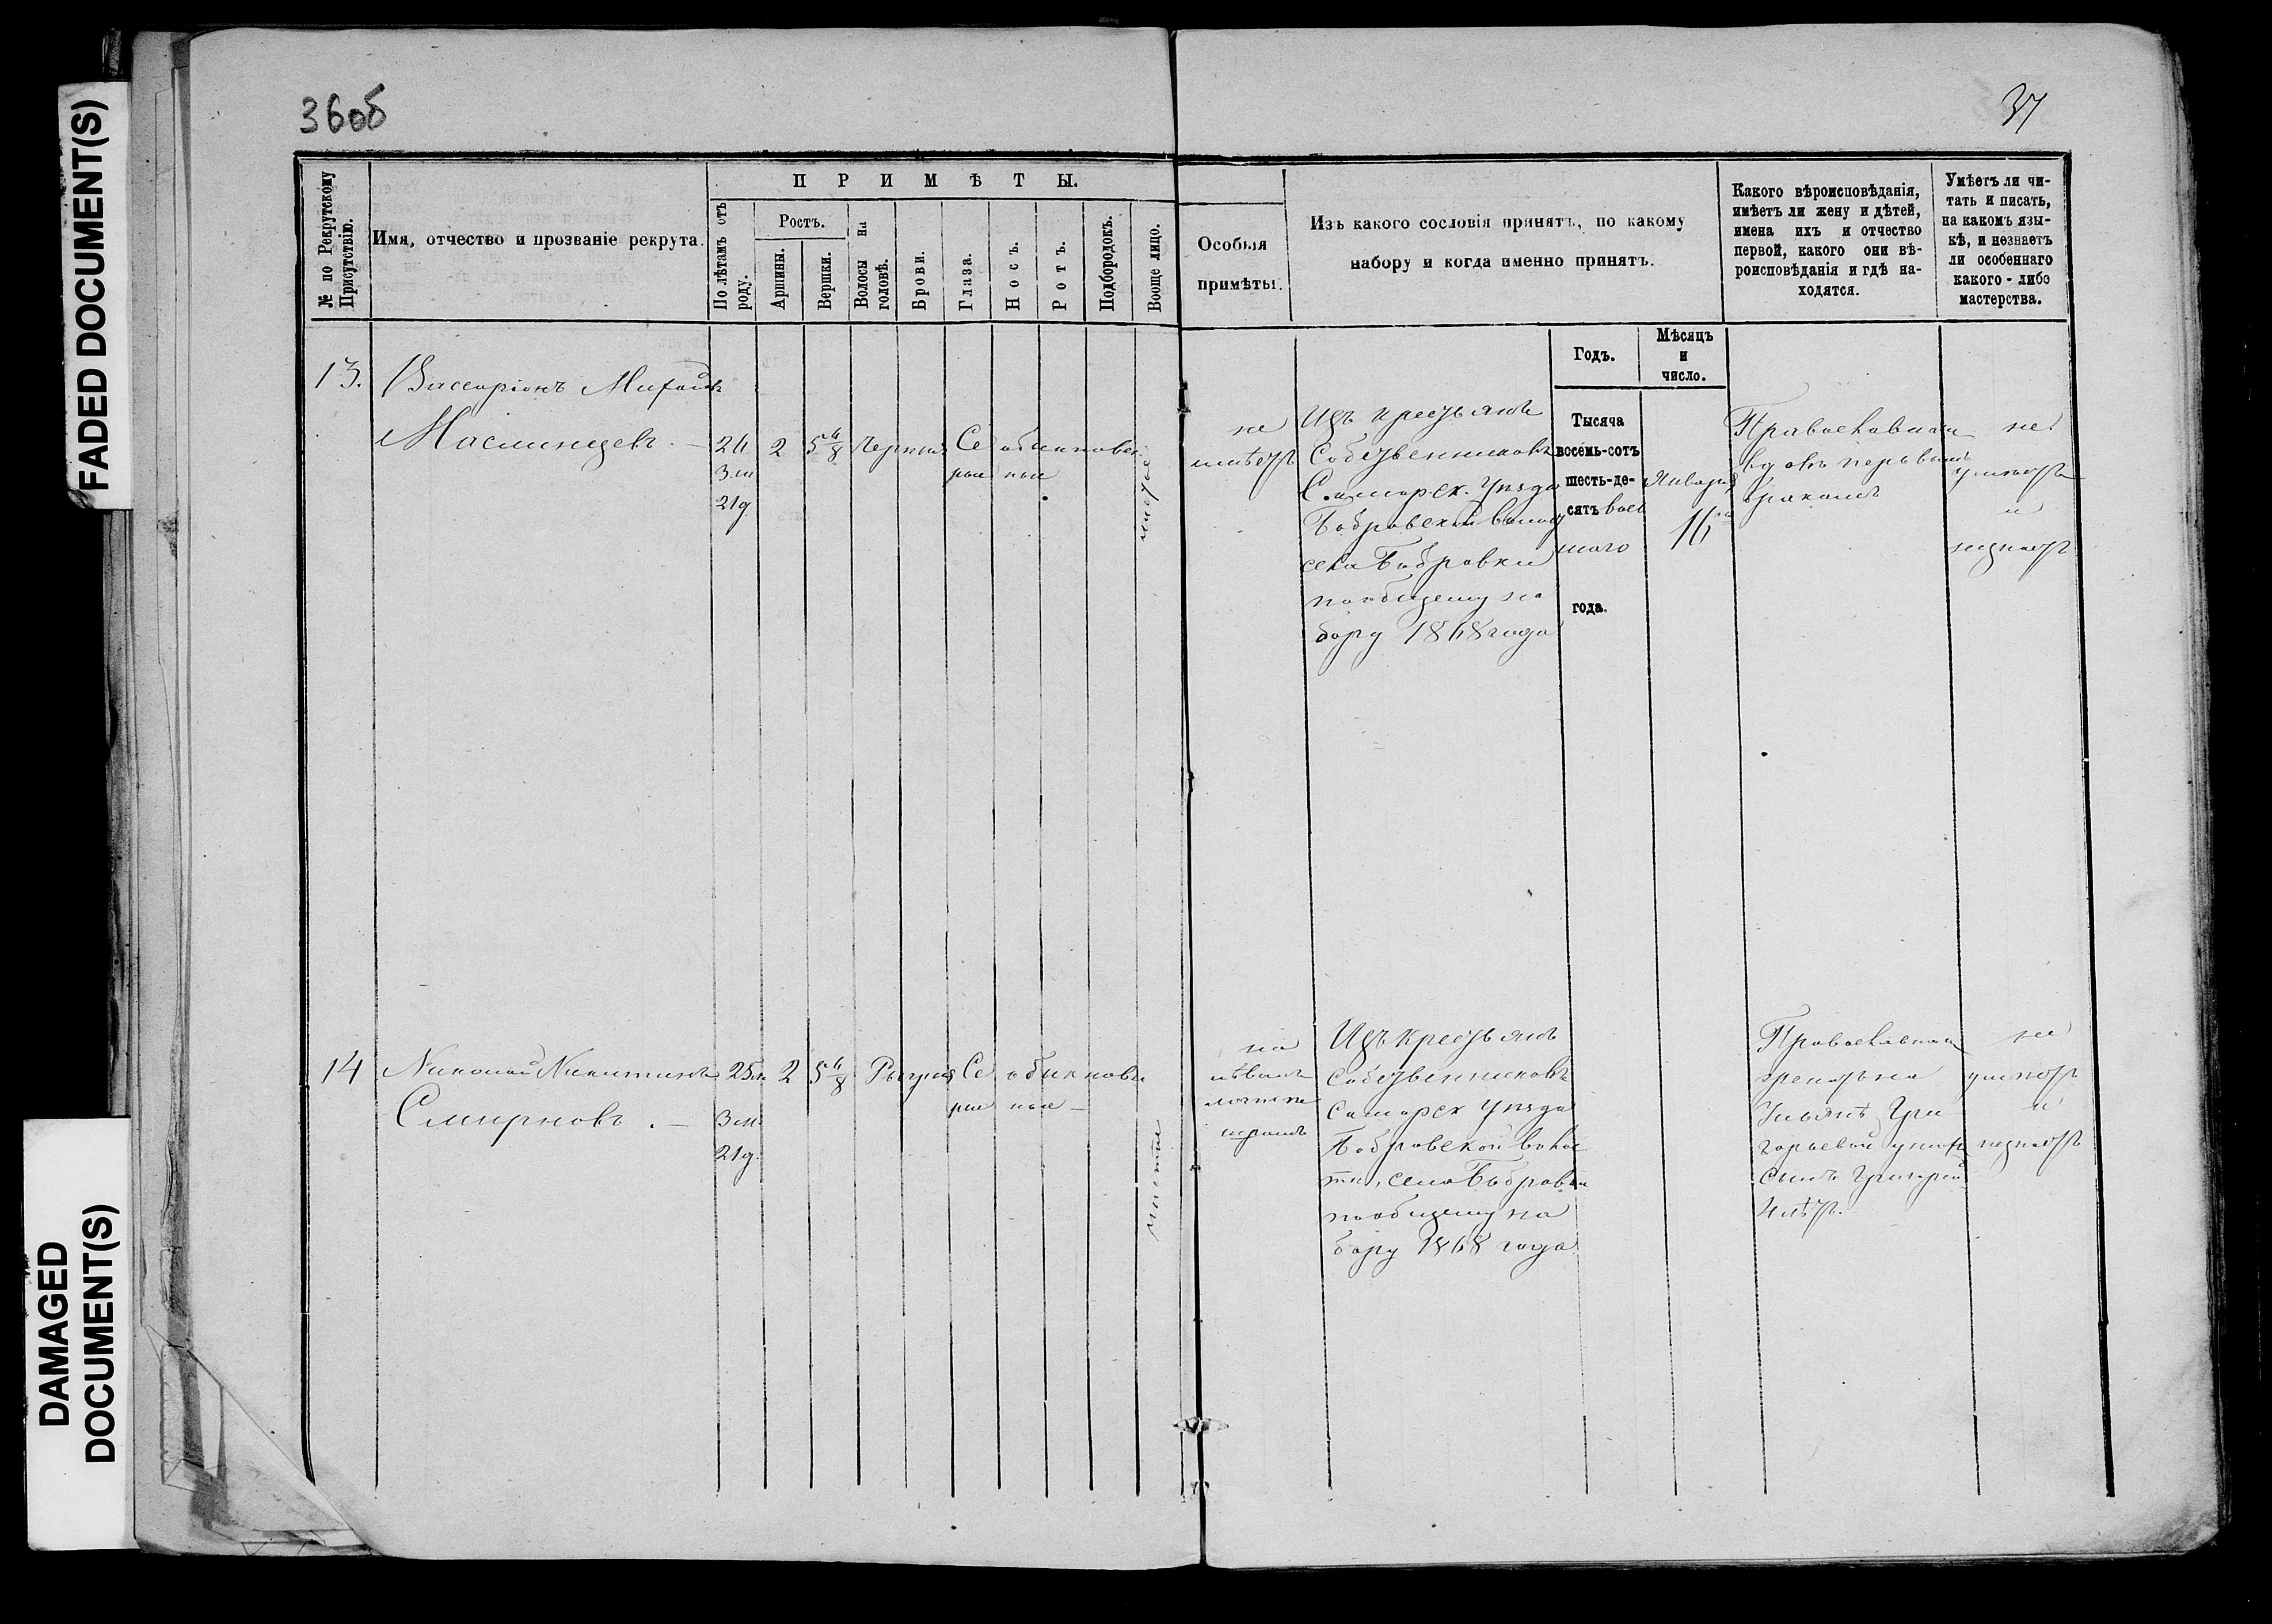 FADED DOCUMENT(S)
DAMAGED
DOCUMENT(S)
36об
37
№ по Рекрутскому
Присутствію.
Имя, отчество и прозваніе рекрута.
ПРИМѢТЫ.
По лѣтамъ отъ
роду.
Ростъ.
Аршины.
Вершки.
Волосы на
головѣ.
Брови.
Глаза.
Носъ.
Ротъ.
Подбородокъ.
Вооще лицо.
Особыя
примѣты.
Изъ какого сословія принятъ, по какому
набору и когда именно принятъ.
Годъ.
Мѣсяцъ
и
число.
Какого вѣроисповѣданія,
имѣетъ ли жену и дѣтей,
имена ихъ и отчество
первой, какого они вѣ-
роисповѣданія и гдѣ на-
ходятся.
Умѣетъ ли чи-
тать и писать,
на какомъ язы-
кѣ, и незнаетъ
ли особеннаго
какого-либо
мастерства.
13.
Виссаріонъ
24
3 м
21 д
2
5 4/8
Черныя
Се
рые
обыкновен
ные
чистое
не
имѣетъ
Изъ крестьянъ
Собственниковъ
Самарск. Уѣзда
Бобровской волос
села Бобровки
по общему на
бору 1868 года
Тысяча
восемь-сотъ
шесть-де-
сятъ вось
маго
года.
Января
16
Православнаго
вдовъ первымъ
бракомъ
не
умѣетъ
и
незнаетъ
14
Николай Никитинъ
Смирновъ. —
25 л
3 м.
21 д.
2
5 4/8
Русыя
Се
рые
обыкновен
ные —
чистое
на
лѣвомъ
шрамъ
Изъ крестьянъ
собственниковъ
Самарск Уѣзда
Бобровской волос
ти, села Бобровки
по общему на
бору 1868 года
Православнаго
женатъ на
Ульянѣ Гри
горьевой у нихъ
сынъ Григорій
4 лѣтъ.
не
умѣетъ
и
незнаетъ